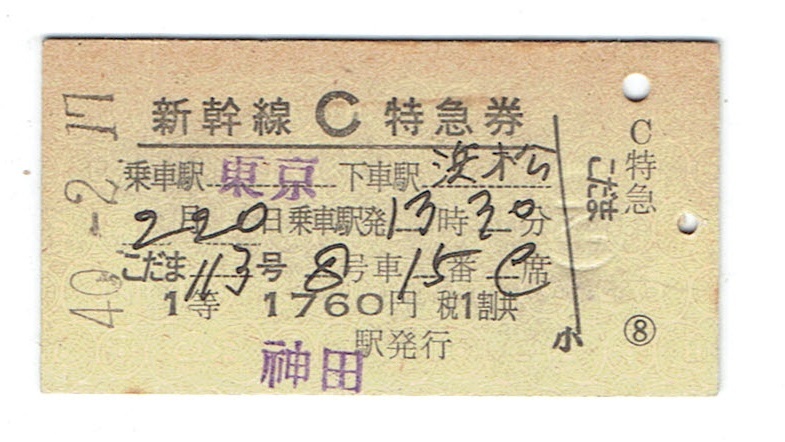 新幹線 C 特急券
乗車駅 東京 下車駅 浜松
2月20日乗車駅発13時30分
こだま113号 8号車15番C席
1等 1760円 税1割共
神田駅発行
40-2.17
こだま
小
C特急
⑧